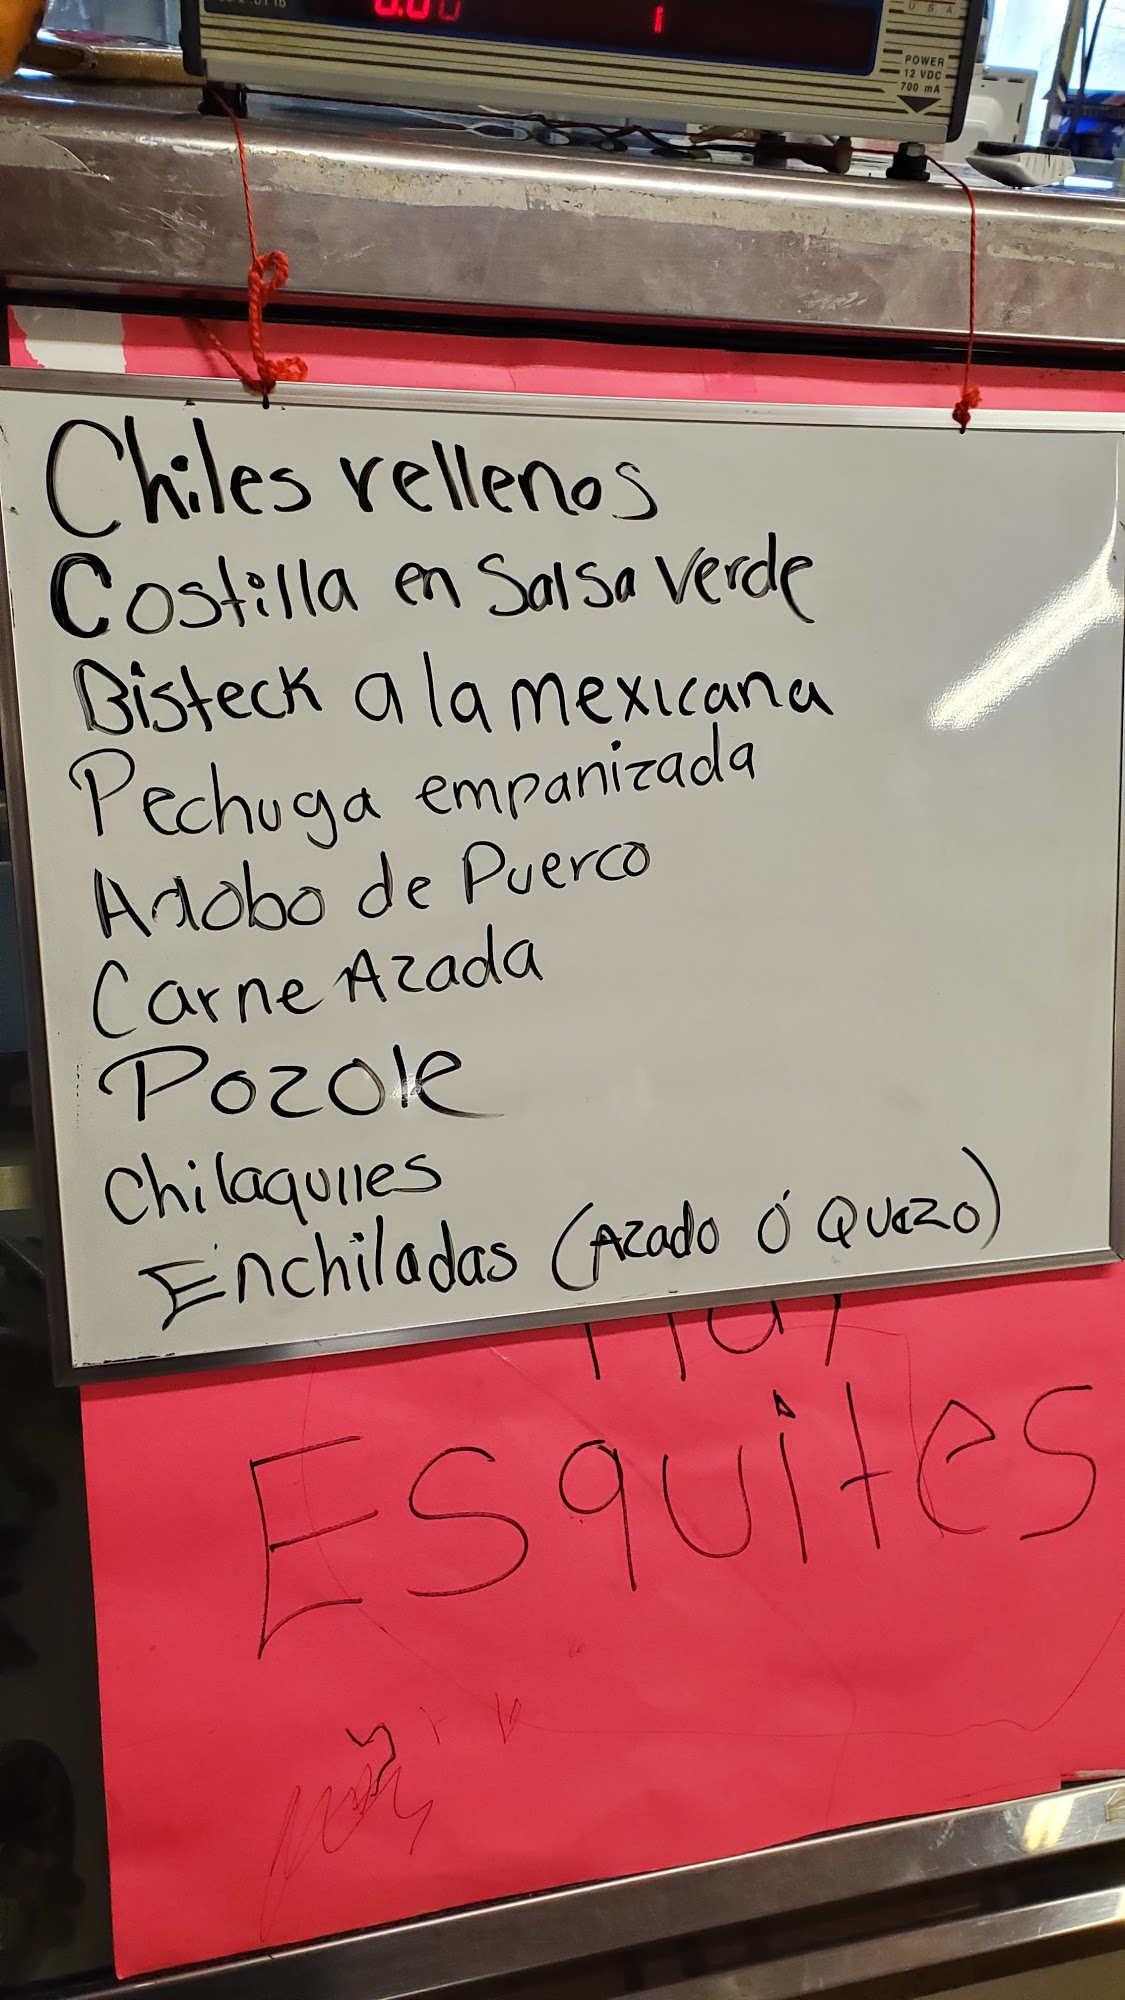 0.00 1
USA
POWER
12 VDC
700 mA
Chiles rellenos
Costilla en Salsa verde
Bisteck a la mexicana
Pechuga empanizada
Adobo de Puerco
Carne Azada
Pozole
Chilaquiles
Enchiladas (Azado ó Quezo)
Hay
Esquites